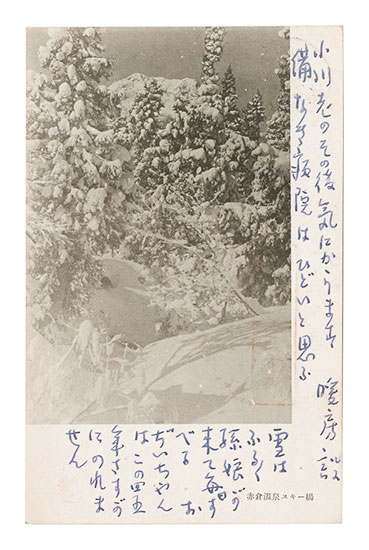 小川老のその後気にかゝります 暖房設
備なき病院はひどいと思ふ
雪は
ふる
孫娘が
来て す
べる お
ぢいちやん
はこの四五
年さすが
にのれま
せん
赤倉温泉スキー場